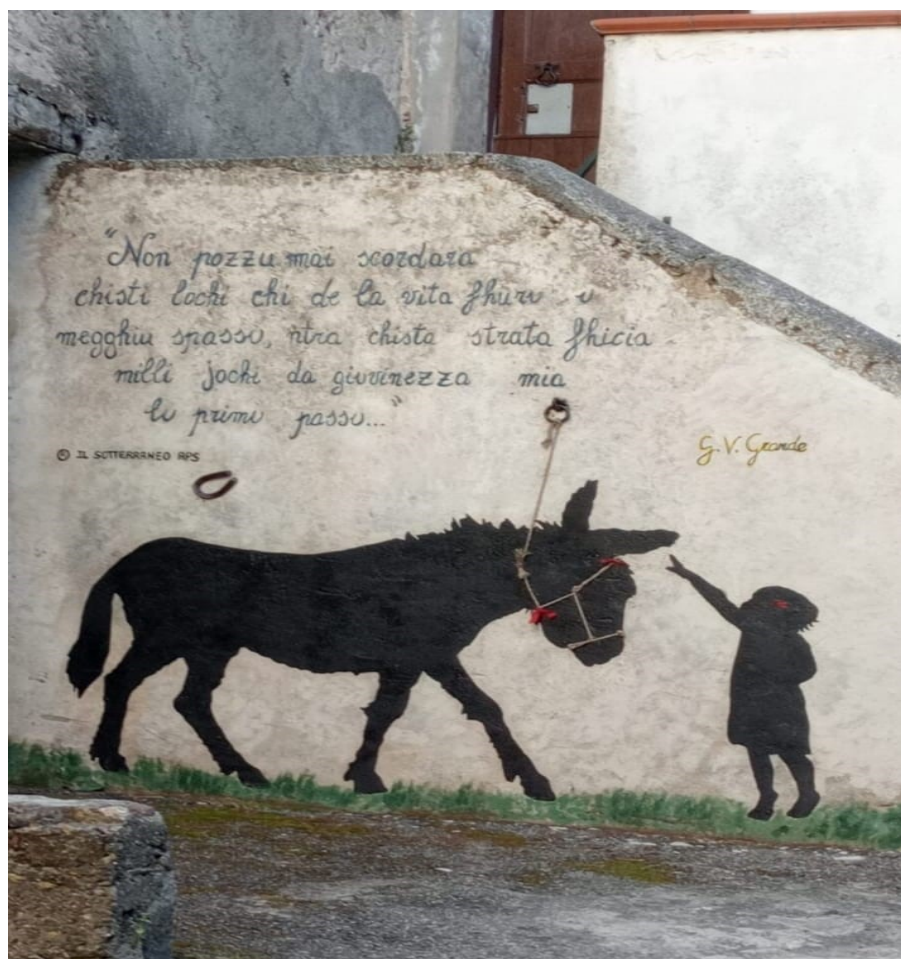 "Non pozzu mai scordara
chisti lochi chi de la vita fhuru u
megghiu spassu, ntra chista strata fhicia
milli jochi da giuvinezza mia
lu primu passu..."
© IL SOTTERRANEO APS
G.V. Grande